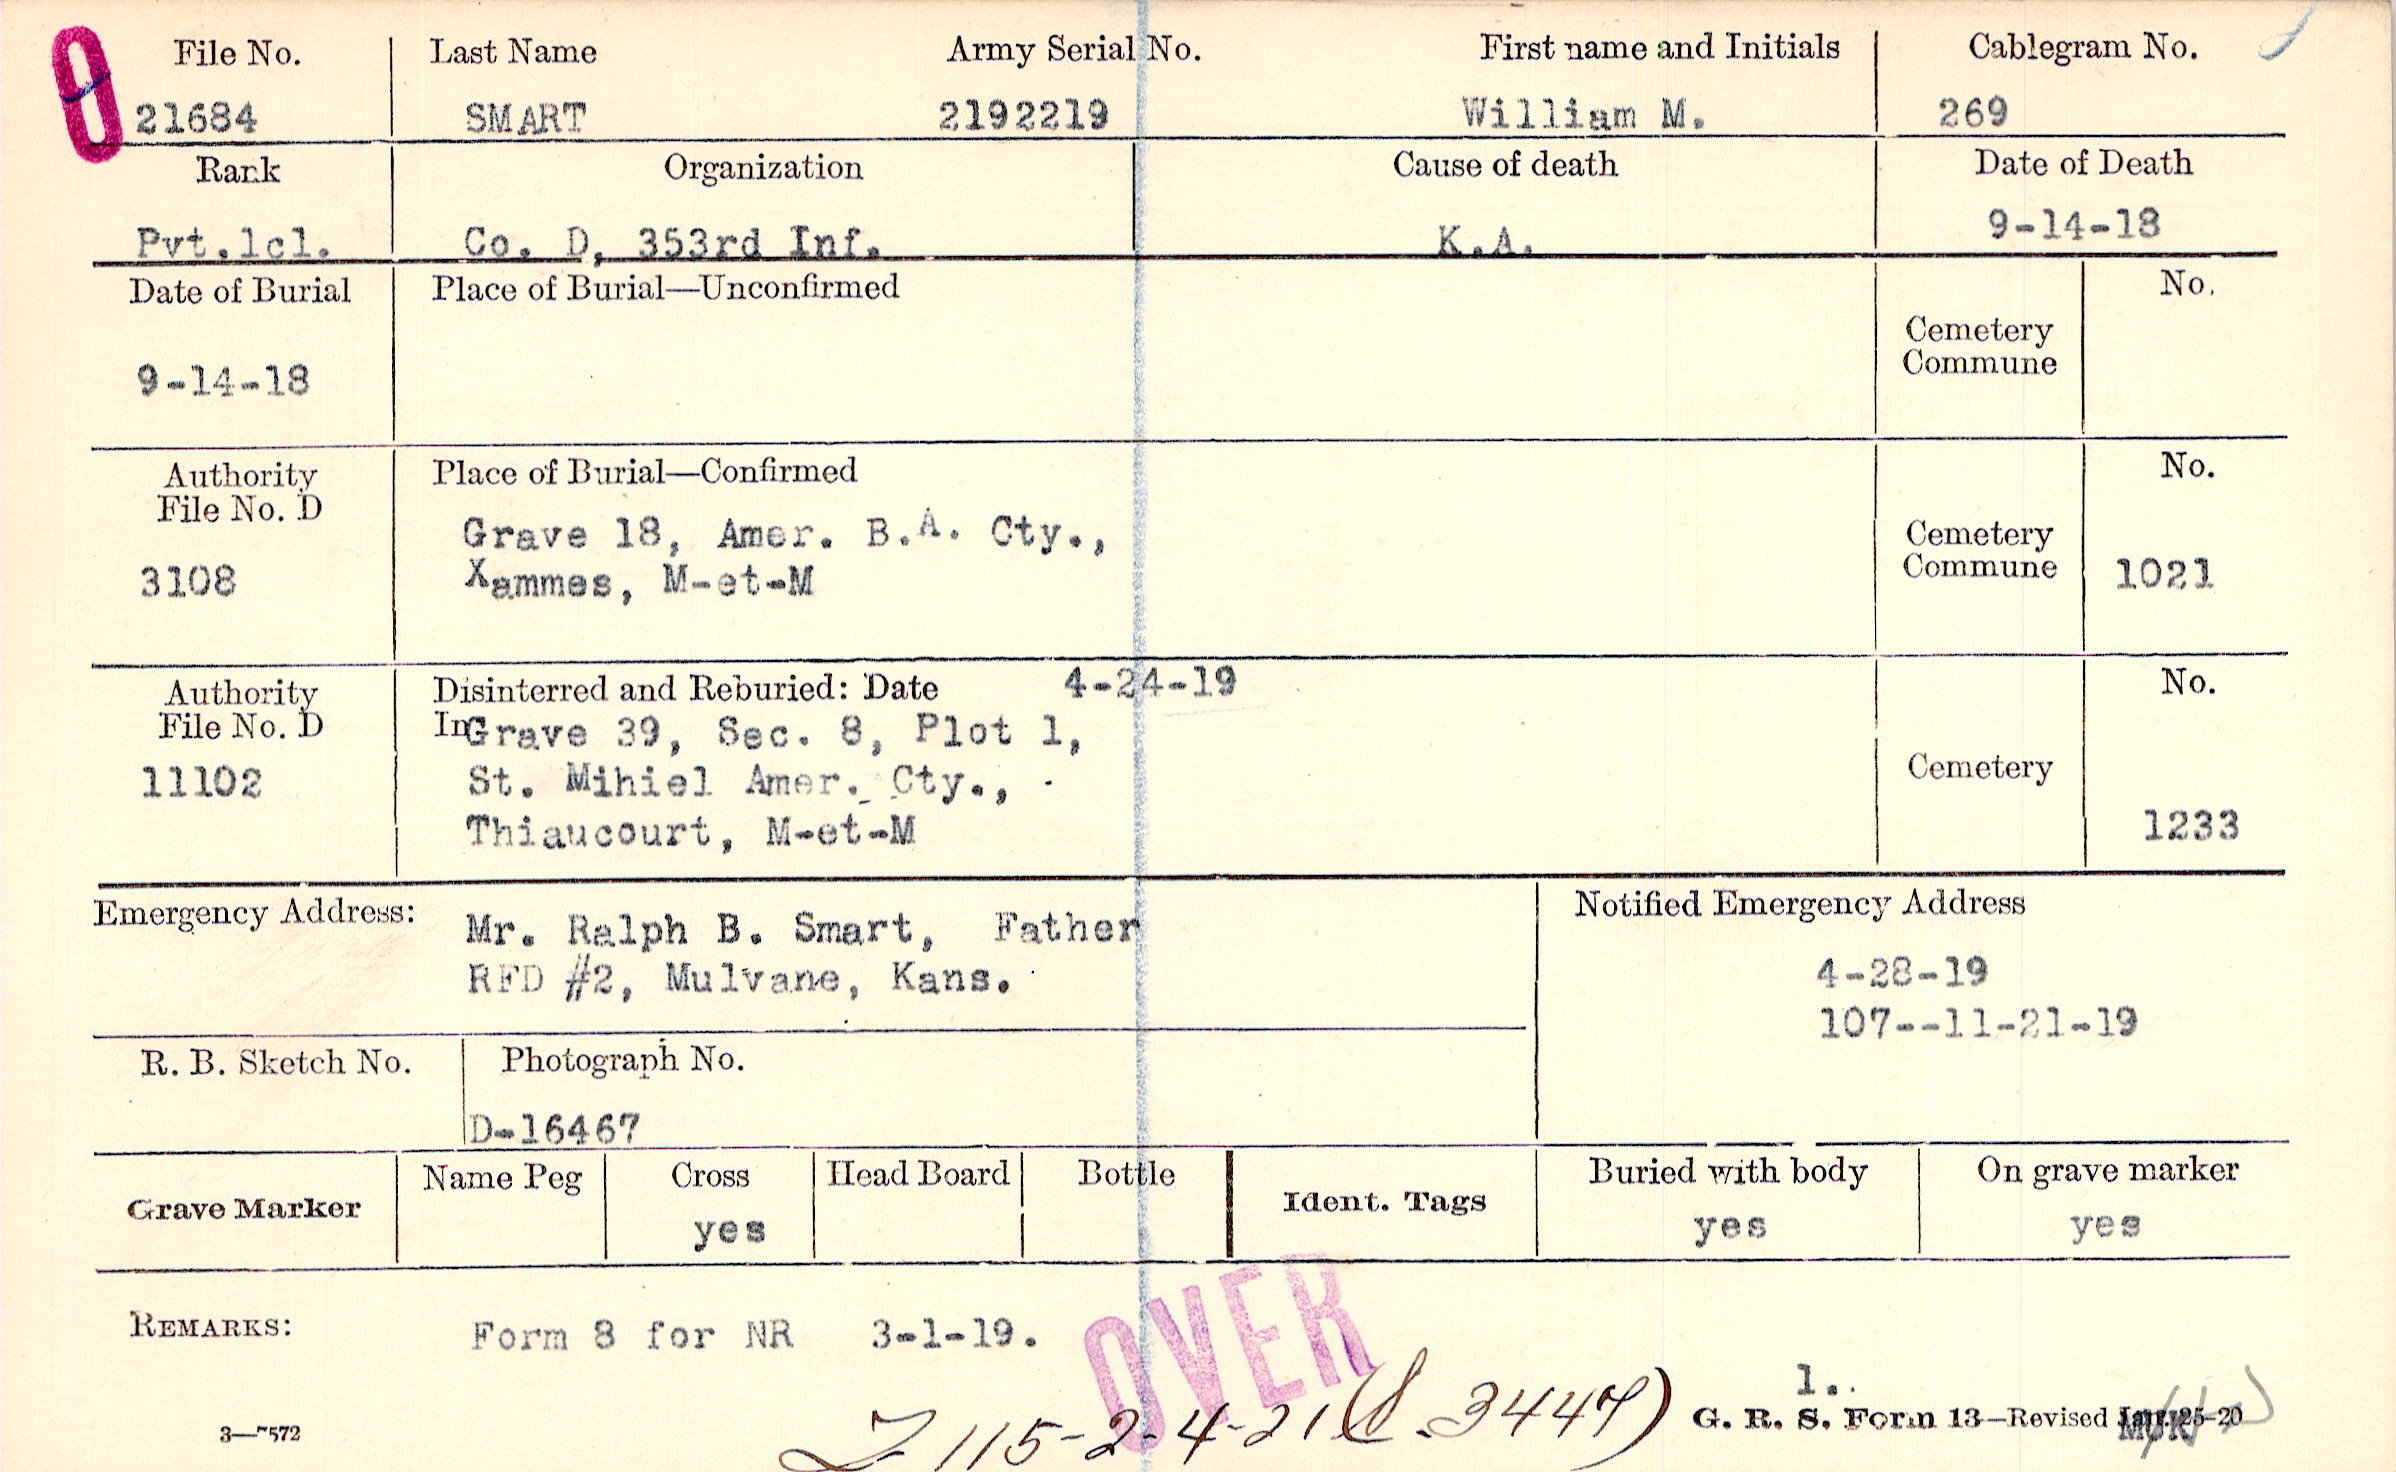 File No. Last Name Army Serial No. First name and Initials Cablegram No.
21684 SMART 2192219 William M. 269
Rank Organization Cause of death Date of Death
Pvt.1cl. Co. D, 353rd Inf. K.A. 9-14-18
Date of Burial Place of Burial—Unconfirmed No.
Cemetery
Commune
9-14-18
Authority Place of Burial—Confirmed No.
File No. D
Grave 18, Amer. B.A. Cty., Cemetery
3108 Xammes, M-et-M Commune 1021
Authority Disinterred and Reburied: Date 4-24-19 No.
File No. D In Grave 39, Sec. 8, Plot 1,
11102 St. Mihiel Amer. Cty., Cemetery
Thiaucourt, M-et-M 1233
Emergency Address: Mr. Ralph B. Smart, Father Notified Emergency Address
RFD #2, Mulvane, Kans. 4-28-19
107--11-21-19
R. B. Sketch No. Photograph No.
D-16467
Grave Marker Name Peg Cross Head Board Bottle Ident. Tags Buried with body On grave marker
yes yes yes
REMARKS: Form 8 for NR 3-1-19.
OVER
1.
115-2-4-21 3447) G. R. S. Form 13—Revised Jan. 25-20
3—7572